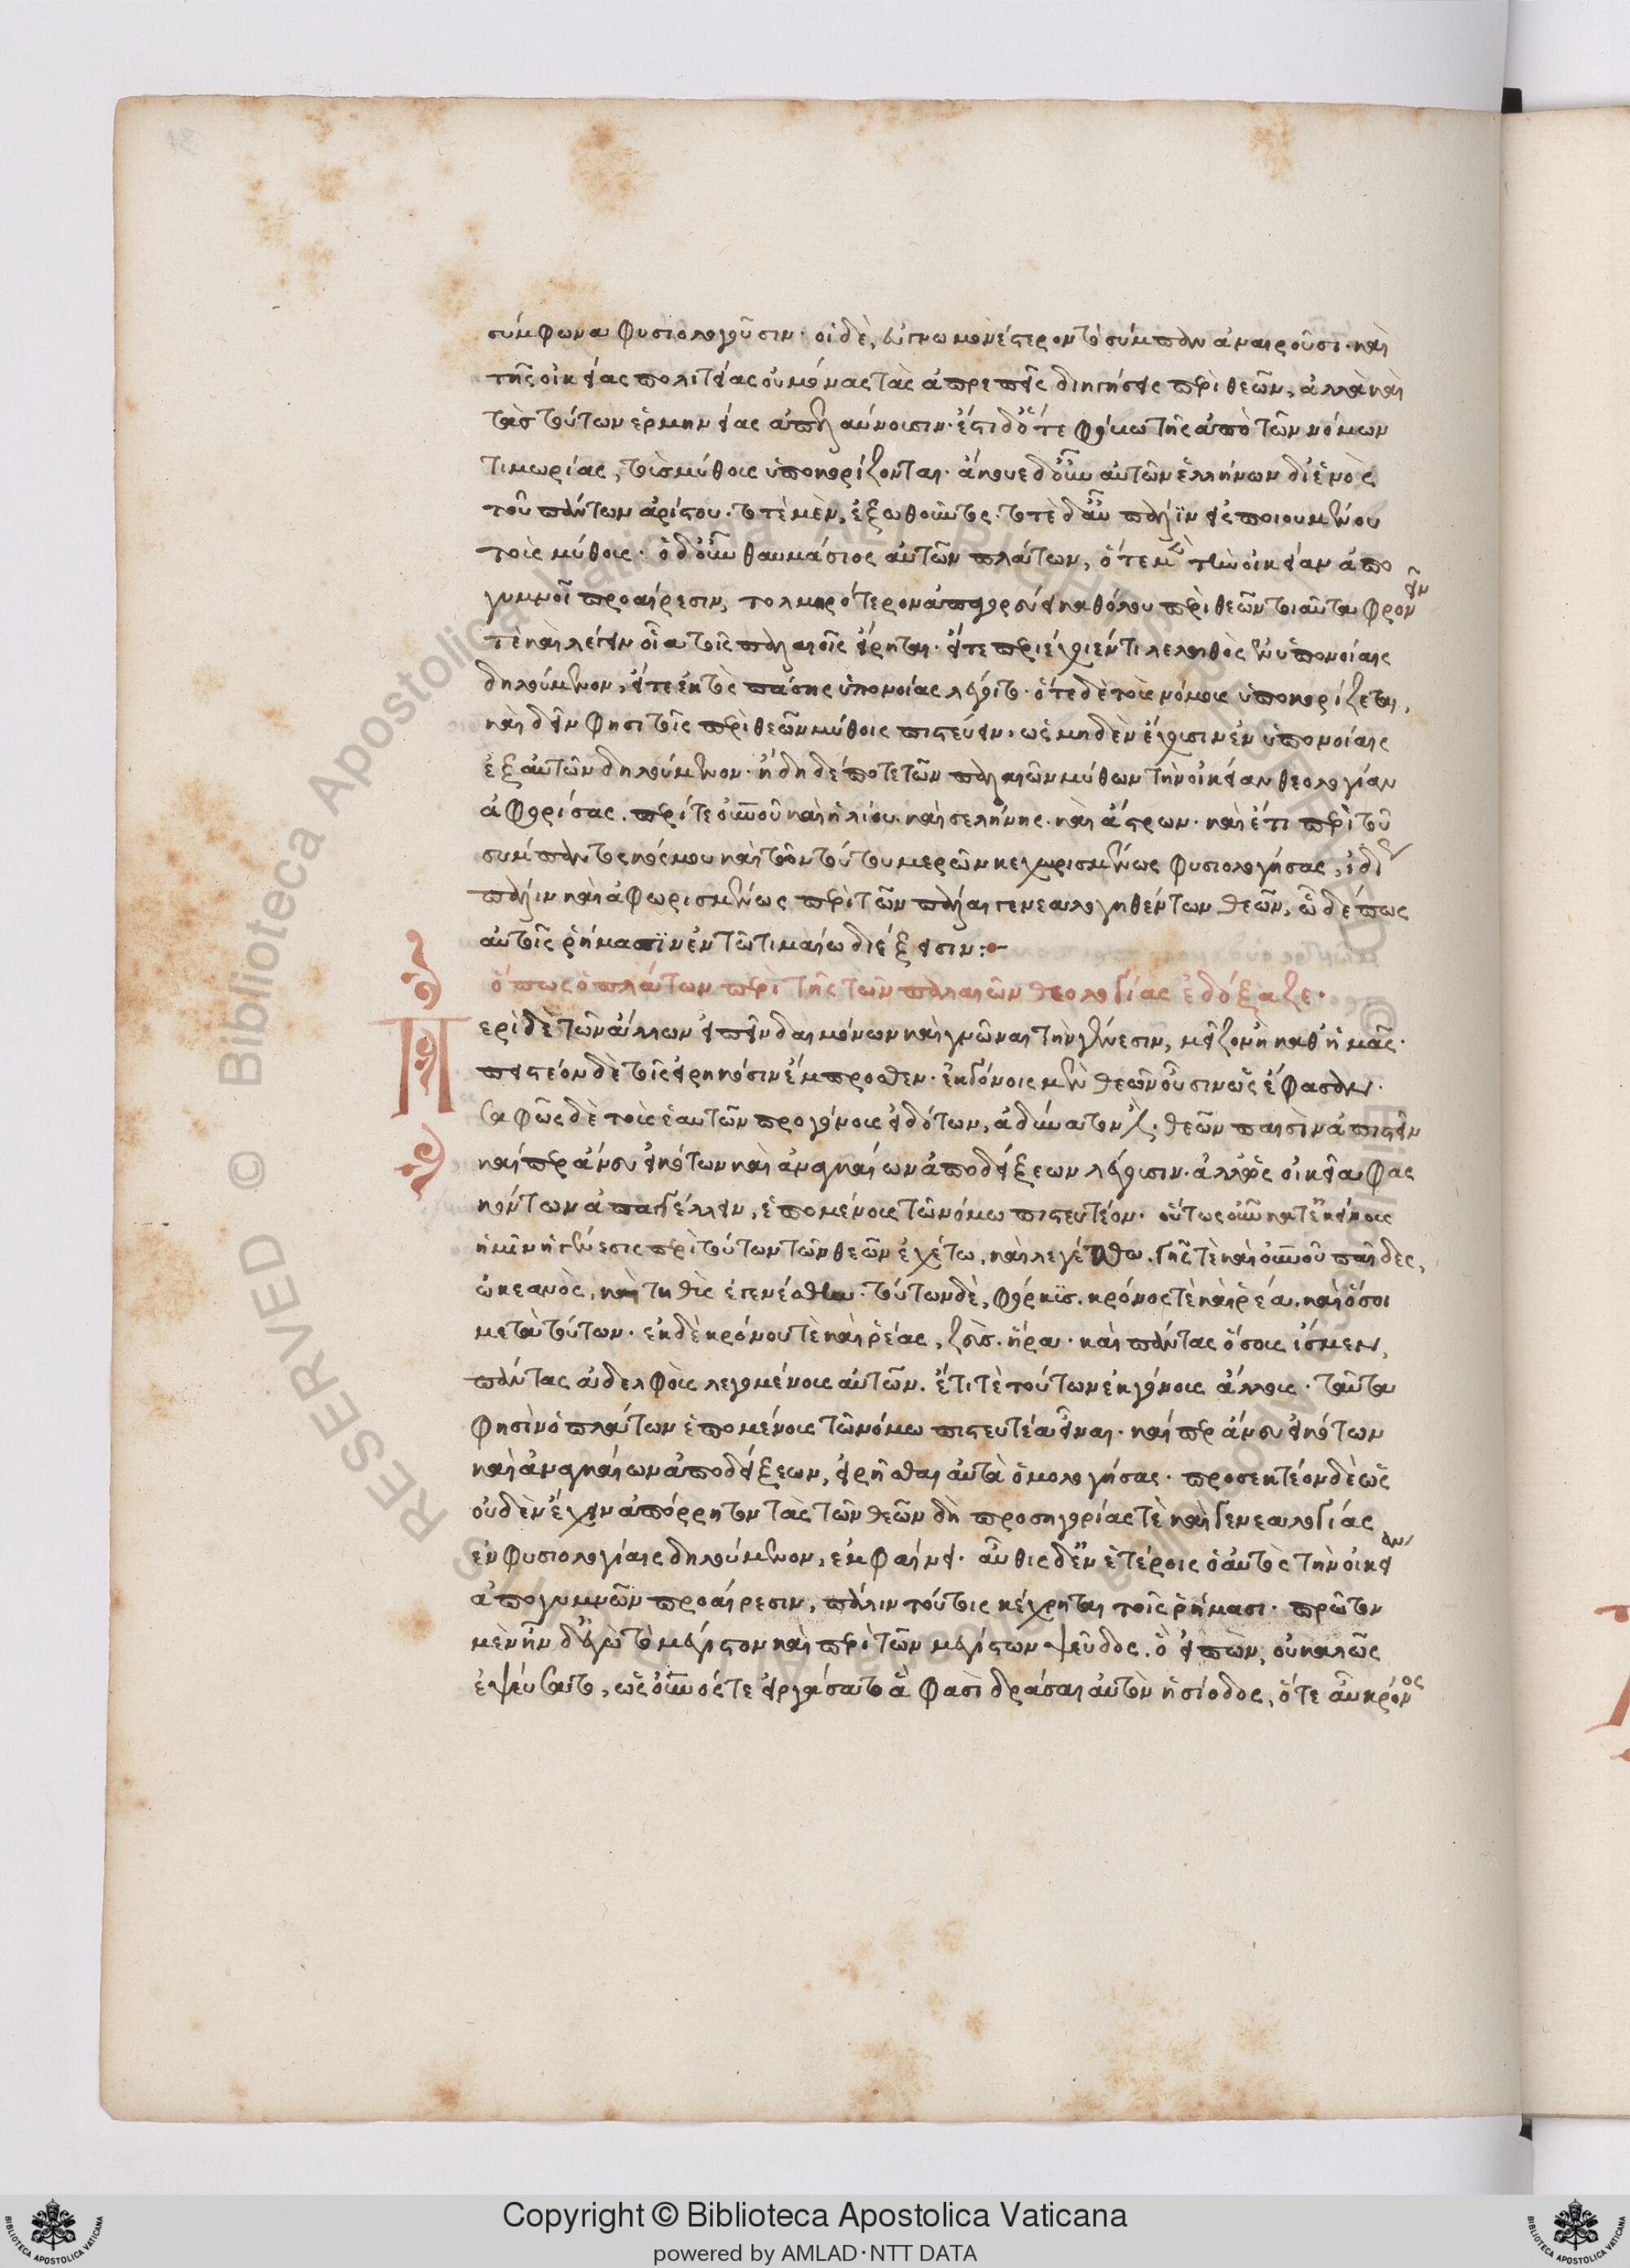 σύμφωνα φυσιολογοῦσιν· οἱ δὲ, εὐγνωμονέστερον τὸ σύμπαν ἀναιροῦσι· καὶ
τῆς οἰκείας πολιτείας οὐ μόνας τὰς ἀπρεπεῖς διηγήσεις περὶ θεῶν, ἀλλὰ καὶ
τὰς τούτων ἑρμηνείας ἀπελαύνουσιν· ἔστι δ' ὅτε φόβω τῆς ἀπὸ τῶν νόμων
τιμωρίας, τοὺς μύθους ὑποκορίζονται· ἄκουε δ' οὖν αὐτῶν ἑλλήνων δι' ἑνὸς
τοῦ πάντων ἀρίστου· τοτὲ μὲν, ἐξωθοῦντος· τοτὲ δ' αὖ πάλιν εἰσποιουμένου
τοὺς μύθους· ὁ δ' οὖν θαυμάσιος αὐτῶν πλάτων, ὅτε μὲν τὴν οἰκείαν ἀπο
γυμνοῖ προαίρεσιν, τολμηρότερον ἀπαγορεύει καθόλου περὶ θεῶν τοιαῦτα φρονεῖν
τὲ καὶ λέγειν οἷα τοῖς παλαιοῖς εἴρηται· εἴτε περιέχοιέν τι λεληθὸς ἐν ὑπονοίαις
δηλούμενον, εἴτε ἐκτὸς πάσης ὑπονοίας λέγοιτο· ὅτε δὲ τοὺς νόμους ὑποκορίζεται,
καὶ δεῖν φησι τοῖς περὶ θεῶν μύθοις πιστεύειν, ὡς μηδὲν ἔχουσιν ἐν ὑπονοίαις
ἐξ αὐτῶν δηλούμενον· ἤδη δέ ποτε τῶν παλαιῶν μύθων τὴν οἰκείαν θεολογίαν
ἀφορίσας, περί τε οὐνοῦ καὶ ἡλίου. καὶ σελήνης. καὶ ἄστρων· καὶ ἔτι περὶ τοῦ
σύμπαντος κόσμου καὶ τῶν τούτου μερῶν κεχωρισμένως φυσιολογήσας, ἰδία
πάλιν καὶ ἀφωρισμένως περὶ τῶν πάλαι γενεαλογηθέντων θεῶν, ὧδέ πως
αὐτοῖς ῥήμασιν ἐν τῶ τιμαίω διέξεισιν:
ὅπως ὁ πλάτων περὶ τῆς τῶν παλαιῶν θεολογίας ἐδόξαζε·
Περὶ δὲ τῶν ἄλλων εἰπεῖν δαιμόνων καὶ γνῶναι τὴν γένεσιν, μεῖζον ἢ καθ' ἡμᾶς·
πειστέον δὲ τοῖς εἰρηκόσιν ἔμπροσθεν· ἐκγόνοις μὲν θεῶν οὖσιν ὡς ἔφασαν·
σαφῶς δὲ τοὺς ἑαυτῶν προγόνους εἰδότων, ἀδύνατον οὖν θεῶν παισὶν ἀπιστεῖν
καίπερ ἄνευ εἰκότων καὶ ἀναγκαίων ἀποδείξεων λέγουσιν· ἀλλ' ὡς οἰκεῖα φασ
κόντων ἀπαγγέλλειν, ἑπομένους τῶ νόμω πιστευτέον· οὕτως οὖν κατ' ἐκείνους
ἡμῖν ἡ γένεσις περὶ τούτων τῶν θεῶν ἐχέτω, καὶ λεγέσθω. γῆς τὲ καὶ οὐνοῦ παῖδες,
ὠκεανὸς, καὶ τηθὺς ἐγενέσθην· τούτων δὲ, φόρκυς. κρόνος τὲ καὶ ῥέα. καὶ ὅσοι
μετὰ τούτων· ἐκ δὲ κρόνου τὲ καὶ ῥέας, ζεὺς. ἥρα· καὶ πάντας ὅσους ἴσμεν,
πάντας ἀδελφοὺς λεγομένους αὐτῶν. ἔτι τὲ τούτων ἐκγόνους ἄλλους· ταῦτα
φησὶν ὁ πλάτων ἑπομένους τῶ νόμω πιστευτέα εἶναι· καίπερ ἄνευ εἰκότων
καὶ ἀναγκαίων ἀποδείξεων, εἰρῆσθαι αὐτὰ ὁμολογήσας· προσεκτέον δὲ ὡς
οὐδὲν ἔχειν ἀπόρρητον τὰς τῶν θεῶν δὴ προσηγορίας τὲ καὶ γενεαλογίας
ἐν φυσιολογίαις δηλούμενον, ἐμφαίνει· αὖθις δ' ἐν ἑτέροις ὁ αὐτὸς τὴν οἰκείαν
ἀπογυμνῶν προαίρεσιν, πάλιν τούτοις κέχρηται τοῖς ῥήμασι· πρῶτον
μὲν ἦν δ' ἐγὼ τὸ μέγιστον καὶ περὶ τῶν μεγίστων ψεῦδος. ὁ εἰπὼν, οὐ καλῶς
ἐψεύσατο, ὡς οὐνός τε εἰργάσατο ἃ φασὶ δρᾶσαι αὐτὸν ἡσίοδος, ὅτε αὖ κρόνος
Copyright © Biblioteca Apostolica Vaticana
powered by AMLAD·NTT DATA